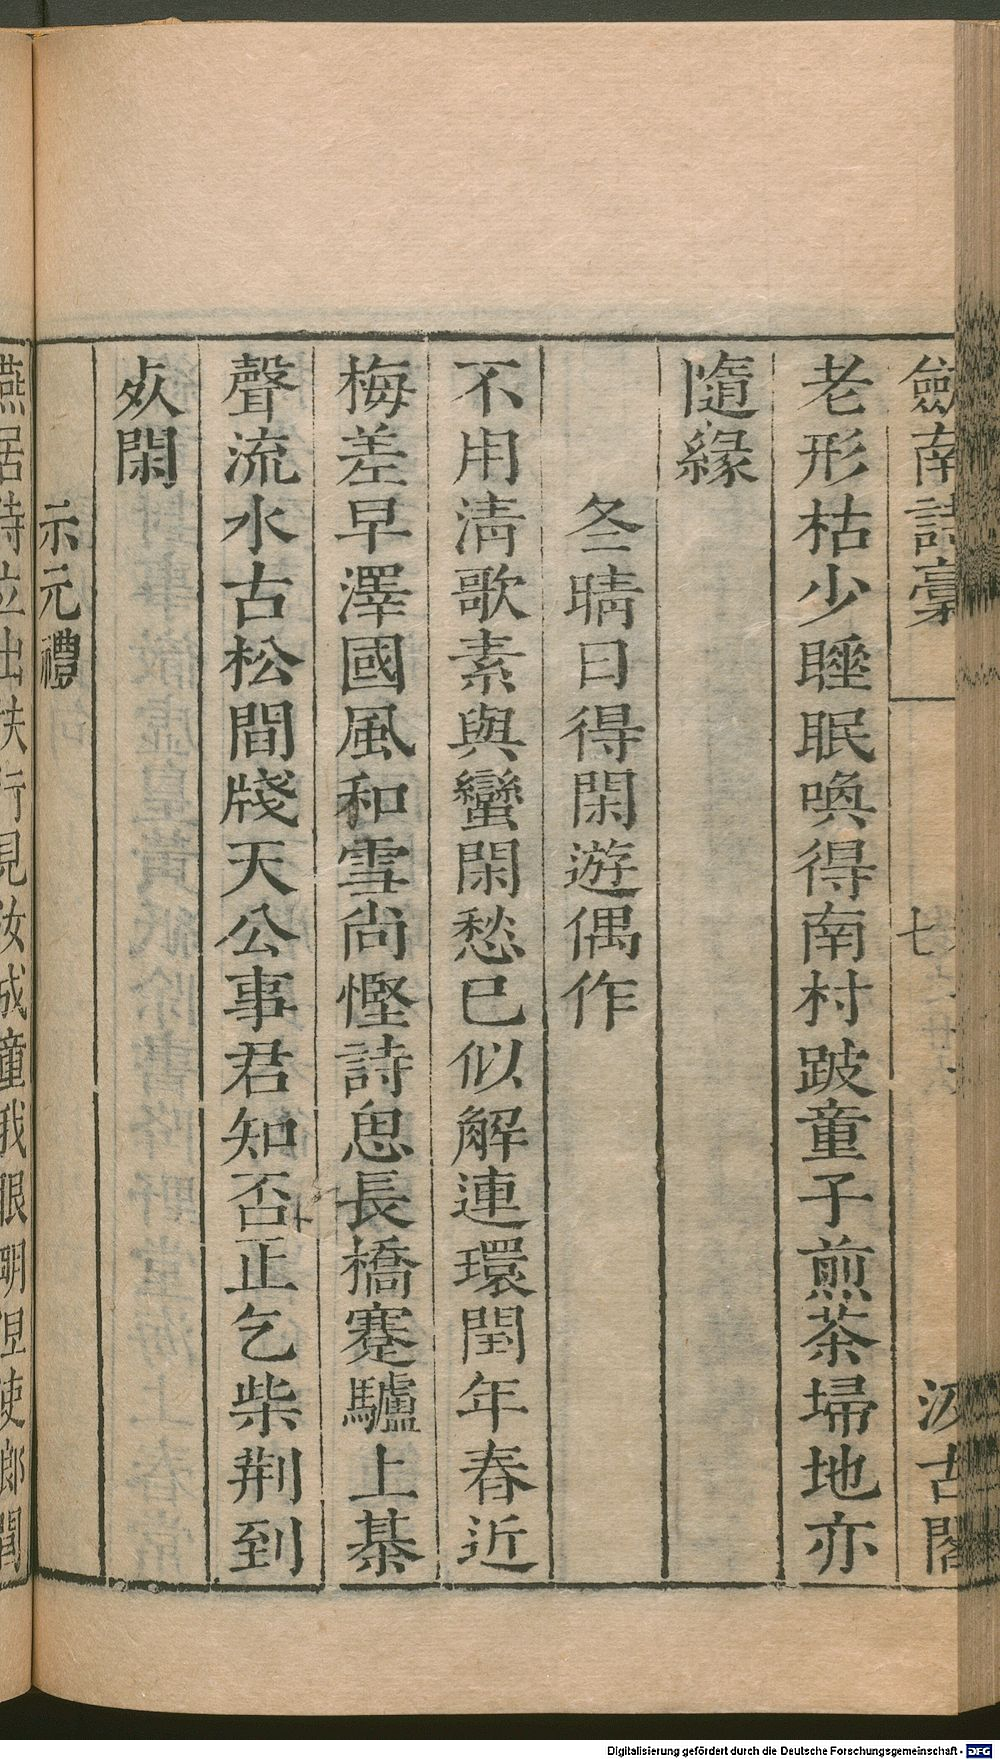 劍南詩稾
七
汲古閣
老形枯少睡眠喚得南村跛童子煎茶埽地亦
隨緣
冬晴日得閑遊偶作
不用淸歌素與蠻閑愁已似解連環閏年春近
梅差早澤國風和雪尚慳詩思長橋蹇驢上棊
聲流水古松間牋天公事君知否止乞柴荆到
処閑
示元禮
燕居侍立出扶行見汝成童我眼明但使郞閒
Digitalisierung gefördert durch die Deutsche Forschungsgemeinschaft - DFG